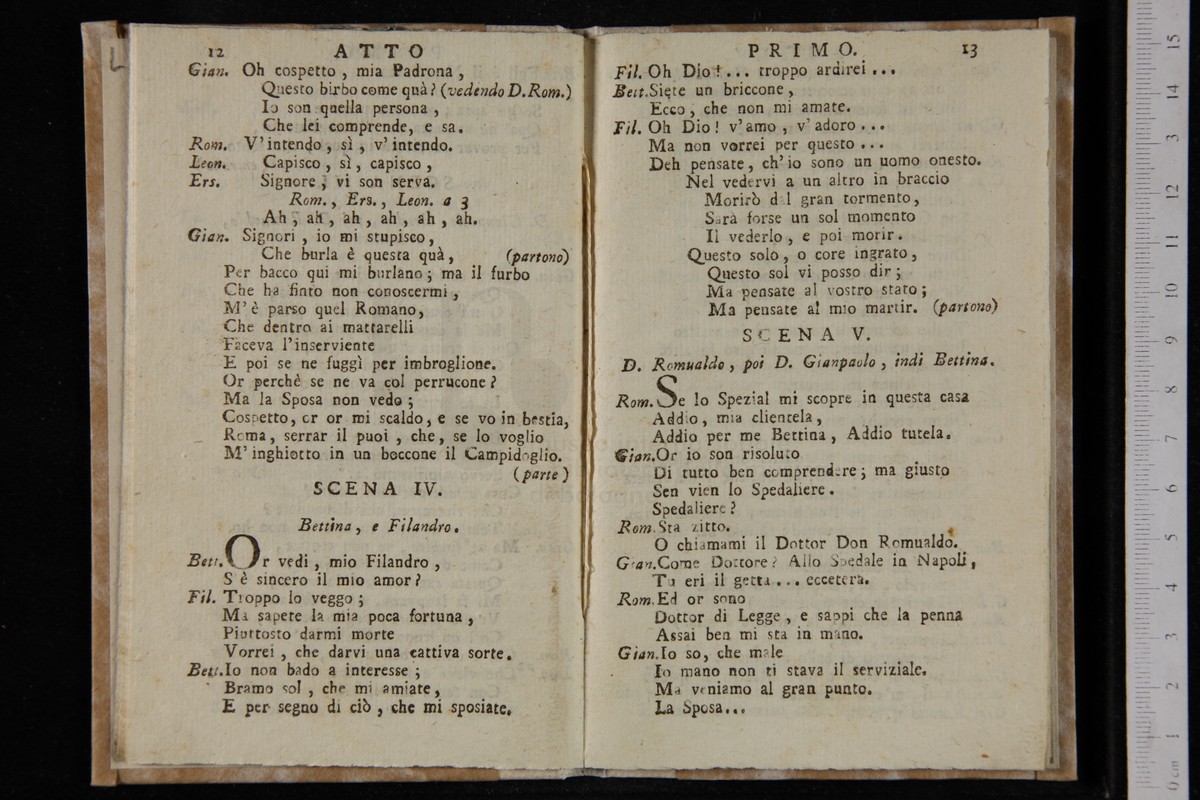 12 ATTO
Gian. Oh cospetto , mia Padrona ,
Questo birbo come quà ? (vedendo D. Rom.)
Io son quella persona ,
Che lei comprende, e sa.
Rom. V' intendo , sì , v' intendo.
Leon. Capisco , sì, capisco ,
Ers. Signore , vi son serva.
Rom. , Ers. , Leon. a 3
Ah , ah , ah , ah , ah , ah.
Gian. Signori , io mi stupisco,
Che burla è questa quà , (partono)
Per bacco qui mi burlano ; ma il furbo
Che ha finto non conoscermi ,
M' è parso quel Romano,
Che dentro ai mattarelli
Faceva l'inserviente
E poi se ne fuggì per imbroglione.
Or perchè se ne va col perrucone ?
Ma la Sposa non vedo ;
Cospetto, or or mi scaldo, e se vo in bestia,
Roma , serrar il puoi , che , se lo voglio
M' inghiotto in un boccone il Campidoglio.
(parte)
SCENA IV.
Bettina , e Filandro.
Bett. Or vedi , mio Filandro ,
S' è sincero il mio amor ?
Fil. Troppo lo veggo ;
Ma sapete la mia poca fortuna ,
Piuttosto darmi morte
Vorrei , che darvi una cattiva sorte.
Bett. Io non bado a interesse ;
Bramo sol , che mi amiate ,
E per segno di ciò , che mi sposiate.
PRIMO. 13
Fil. Oh Dio ! ... troppo ardirei ...
Bett. Siete un briccone ,
Ecco , che non mi amate.
Fil. Oh Dio ! v' amo , v' adoro ...
Ma non vorrei per questo ...
Deh pensate, ch' io sono un uomo onesto.
Nel vedervi a un altro in braccio
Morirò dal gran tormento,
Sarà forse un sol momento
Il vederlo , e poi morir.
Questo solo, o core ingrato ,
Questo sol vi posso dir ;
Ma pensate al vostro stato ;
Ma pensate al mio martir. (partono)
SCENA V.
D. Romualdo , poi D. Gianpaolo , indi Bettina.
Rom. Se lo Spezial mi scopre in questa casa
Addio , mia clientela ,
Addio per me Bettina , Addio tutela.
Gian. Or io son risoluto
Di tutto ben comprendere ; ma giusto
Sen vien lo Spedaliere.
Spedaliere ?
Rom. Sta zitto.
O chiamami il Dottor Don Romualdo.
Gian. Come Dottore ? Allo Spedale in Napoli,
Tu eri il getta ... eccetera.
Rom. Ed or sono
Dottor di Legge , e sappi che la penna
Assai ben mi sta in mano.
Gian. Io so, che male
In mano non ti stava il serviziale.
Ma veniamo al gran punto.
La Sposa...